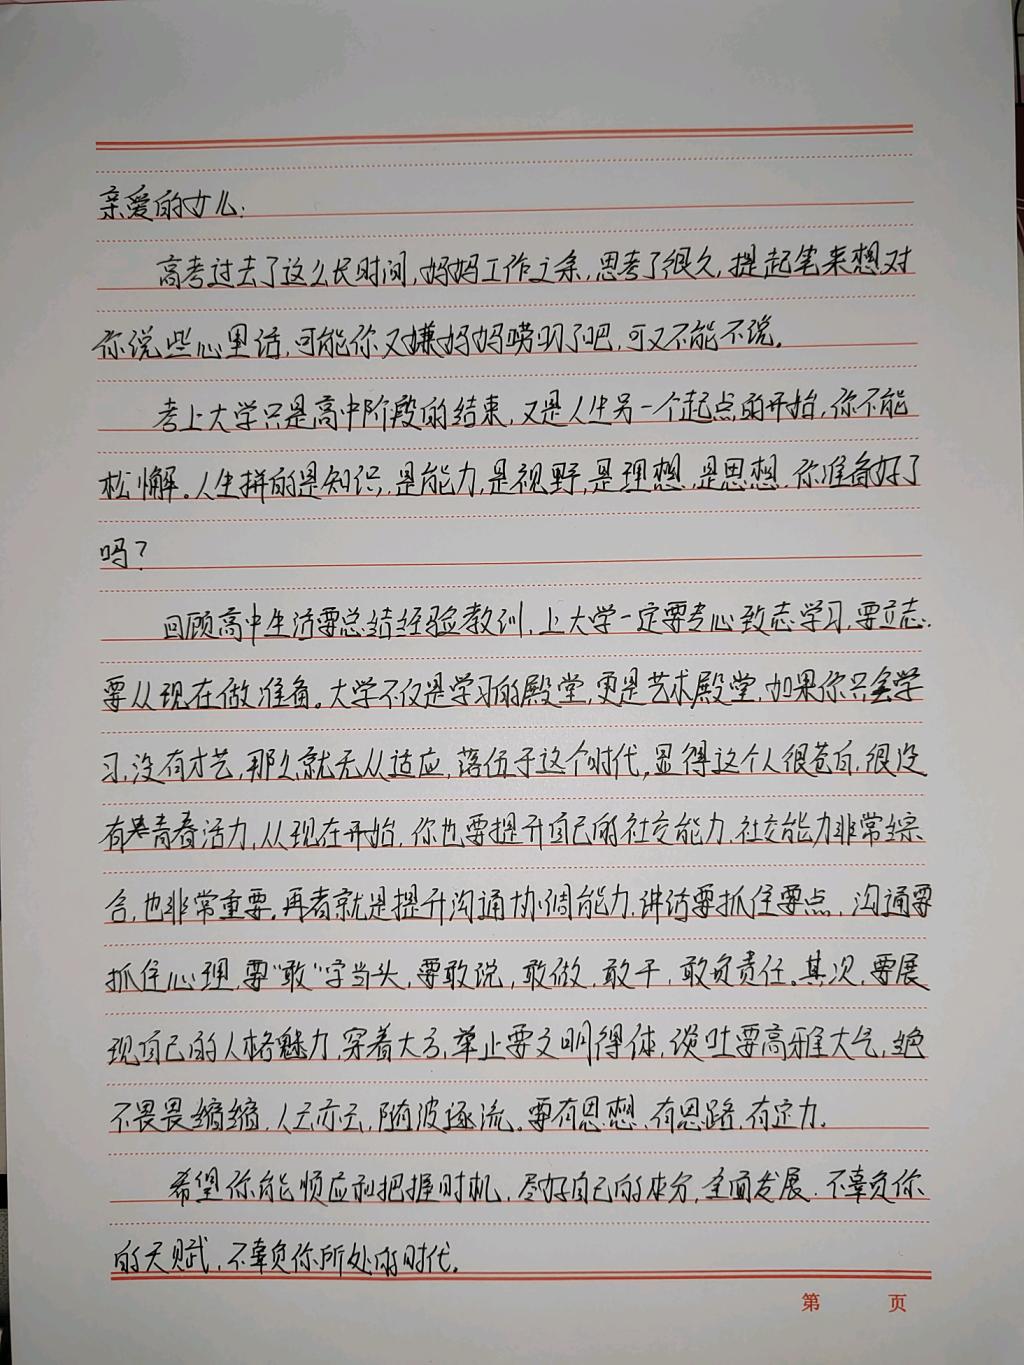 亲爱的女儿:
高考过去了这么长时间,妈妈工作之余,思考了很久,提起笔来想对
你说些心里话,可能你又嫌妈妈唠叨了吧,可又不能不说。
考上大学只是高中阶段的结束,又是人生另一个起点的开始,你不能
松懈。人生拼的是知识,是能力,是视野,是理想,是思想,你准备好了
吗?
回顾高中生活要总结经验教训,上大学一定要专心致志学习,要立志,
要从现在做准备。大学不仅是学习的殿堂,更是艺术殿堂,如果你只会学
习,没有才艺,那么就无从适应,落伍于这个时代,显得这个人很苍白,很没
有青春活力,从现在开始,你也要提升自己的社交能力,社交能力非常综
合,也非常重要,再者就是提升沟通协调能力,讲话要抓住要点,沟通要
抓住心理,要“敢”字当头,要敢说,敢做,敢干,敢负责任。其次,要展
现自己的人格魅力,穿着大方,举止要文明得体,谈吐要高雅大气,绝
不畏畏缩缩,人云亦云,随波逐流。要有思想,有思路,有定力。
希望你能顺应和把握时机,尽好自己的本分,全面发展,不辜负你
的天赋,不辜负你所处的时代。
第 页